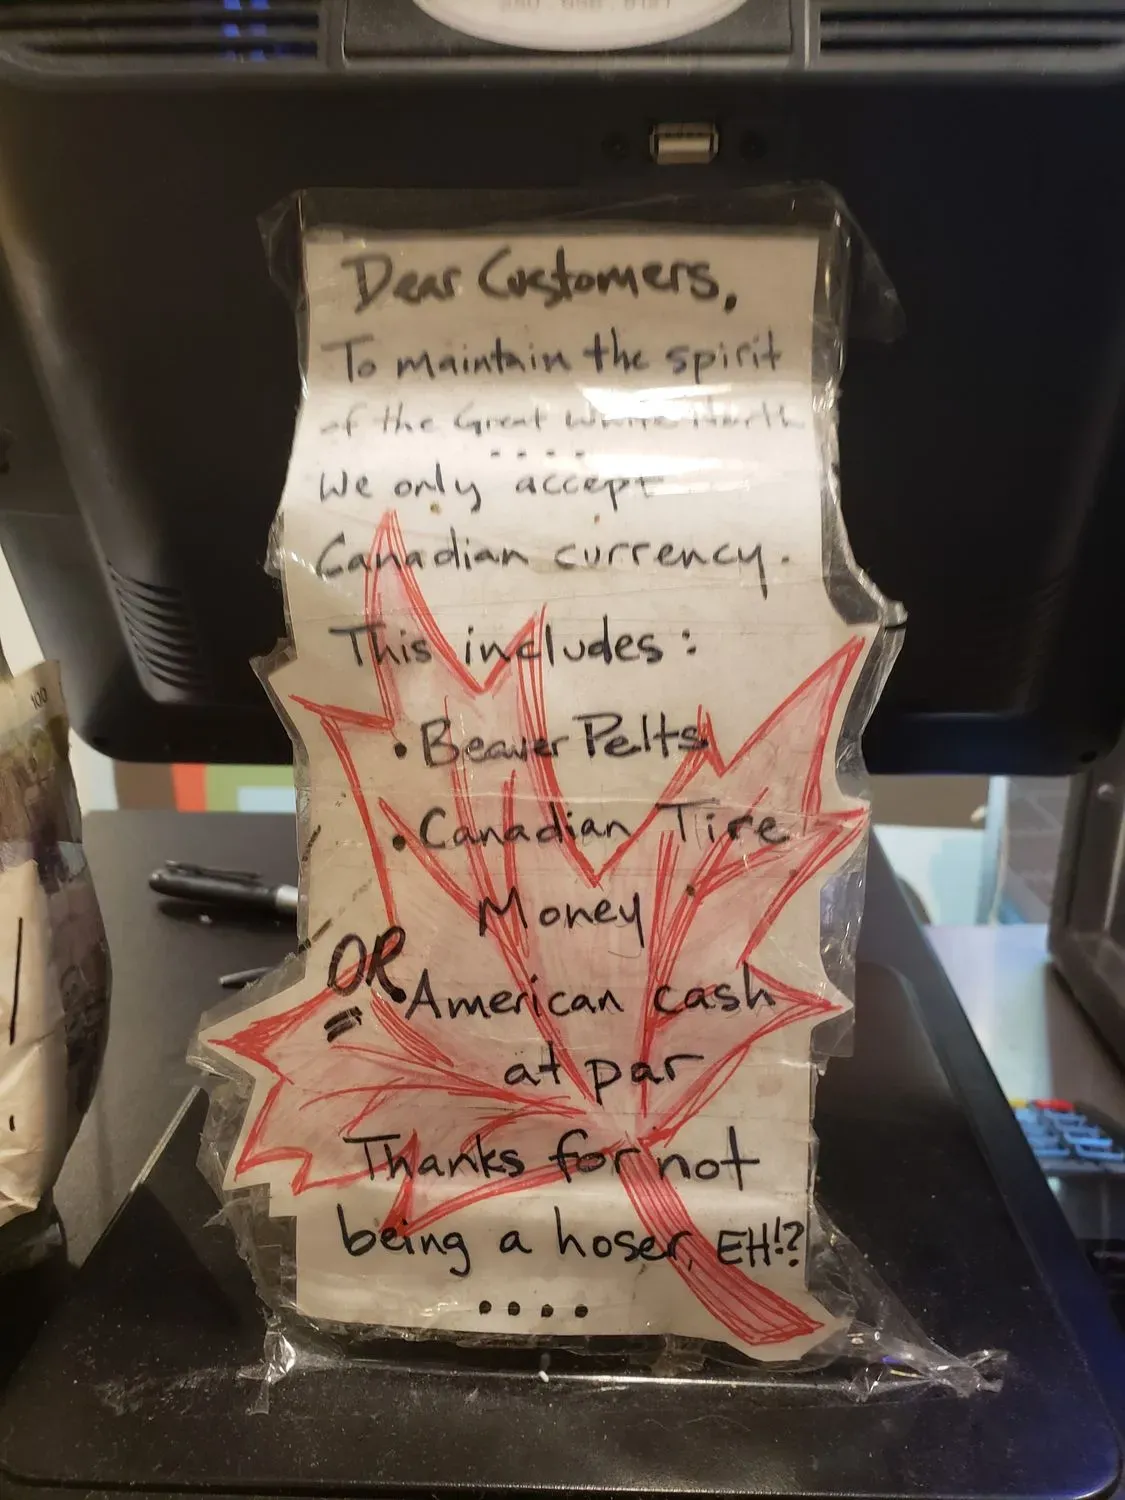 Dear Customers,
To maintain the spirit
of the Great White North
....
We only accept
Canadian currency.
This includes:
• Beaver Pelts
• Canadian Tire
Money
OR • American cash
at par
Thanks for not
being a hoser, EH!?
....
100